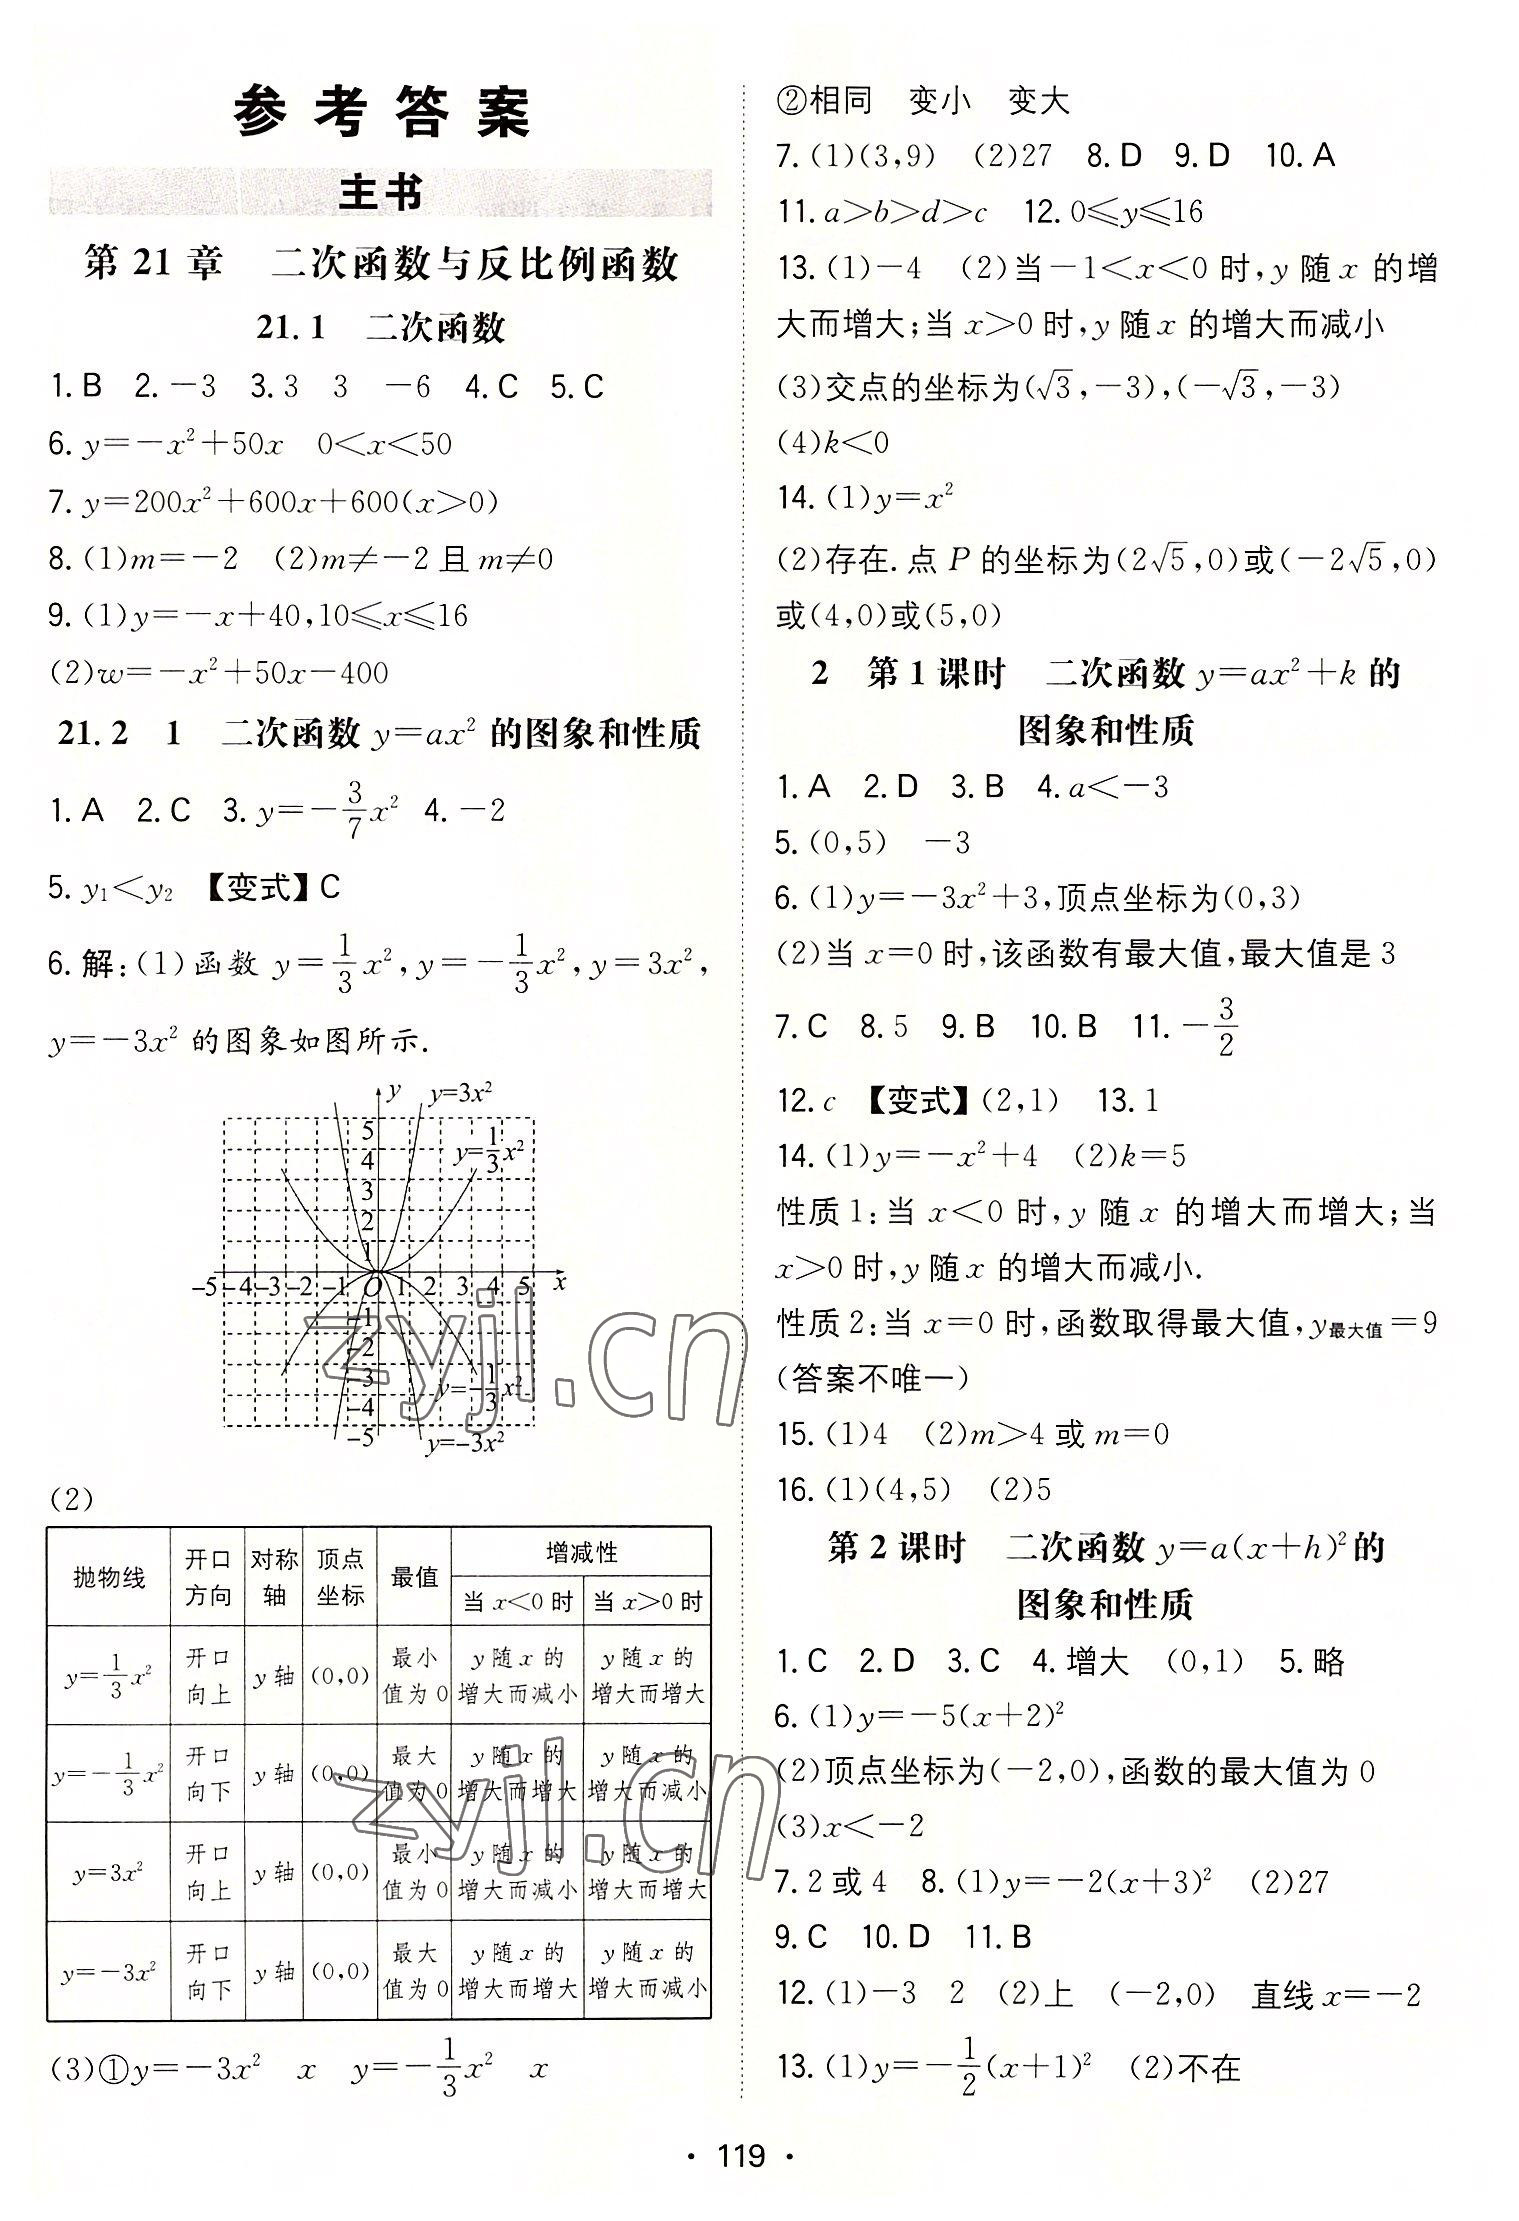 参考答案
主书
第 21 章 二次函数与反比例函数
21.1 二次函数
1.B 2.-3 3.3 3 -6 4.C 5.C
6.y=-x²+50x 0<x<50
7.y=200x²+600x+600(x>0)
8.(1)m=-2 (2)m≠-2 且 m≠0
9.(1)y=-x+40,10≤x≤16
(2)w=-x²+50x-400
21.2 1 二次函数 y=ax² 的图象和性质
1.A 2.C 3.y=-3/7x² 4.-2
5.y₁<y₂ 【变式】C
6.解:(1)函数 y=1/3x²,y=-1/3x²,y=3x²,
y=-3x² 的图象如图所示.
y y=3x²
y=1/3x²
5
4
3
2
1
-5 -4 -3 -2 -1 O 1 2 3 4 5 x
-1
-2
-3
-4
-5
y=-1/3x²
y=-3x²
(2)
抛物线 开口方向 对称轴 顶点坐标 最值 增减性
当 x<0 时 当 x>0 时
y=1/3x² 开口向上 y 轴 (0,0) 最小值为 0 y 随 x 的增大而减小 y 随 x 的增大而增大
y=-1/3x² 开口向下 y 轴 (0,0) 最大值为 0 y 随 x 的增大而增大 y 随 x 的增大而减小
y=3x² 开口向上 y 轴 (0,0) 最小值为 0 y 随 x 的增大而减小 y 随 x 的增大而增大
y=-3x² 开口向下 y 轴 (0,0) 最大值为 0 y 随 x 的增大而增大 y 随 x 的增大而减小
(3)①y=-3x² x y=-1/3x² x
②相同 变小 变大
7.(1)(3,9) (2)27 8.D 9.D 10.A
11.a>b>d>c 12.0≤y≤16
13.(1)-4 (2)当-1<x<0 时,y 随 x 的增
大而增大;当 x>0 时,y 随 x 的增大而减小
(3)交点的坐标为(√3,-3),(-√3,-3)
(4)k<0
14.(1)y=x²
(2)存在.点 P 的坐标为(2√5,0)或(-2√5,0)
或(4,0)或(5,0)
2 第 1 课时 二次函数 y=ax²+k 的
图象和性质
1.A 2.D 3.B 4.a<-3
5.(0,5) -3
6.(1)y=-3x²+3,顶点坐标为(0,3)
(2)当 x=0 时,该函数有最大值,最大值是 3
7.C 8.5 9.B 10.B 11.-3/2
12.c 【变式】(2,1) 13.1
14.(1)y=-x²+4 (2)k=5
性质 1:当 x<0 时,y 随 x 的增大而增大;当
x>0 时,y 随 x 的增大而减小.
性质 2:当 x=0 时,函数取得最大值,y最大值=9
(答案不唯一)
15.(1)4 (2)m>4 或 m=0
16.(1)(4,5) (2)5
第 2 课时 二次函数 y=a(x+h)²的
图象和性质
1.C 2.D 3.C 4.增大 (0,1) 5.略
6.(1)y=-5(x+2)²
(2)顶点坐标为(-2,0),函数的最大值为 0
(3)x<-2
7.2 或 4 8.(1)y=-2(x+3)² (2)27
9.C 10.D 11.B
12.(1)-3 2 (2)上 (-2,0) 直线 x=-2
13.(1)y=-1/2(x+1)² (2)不在
· 119 ·
zyjl.cn
zyjl.cn